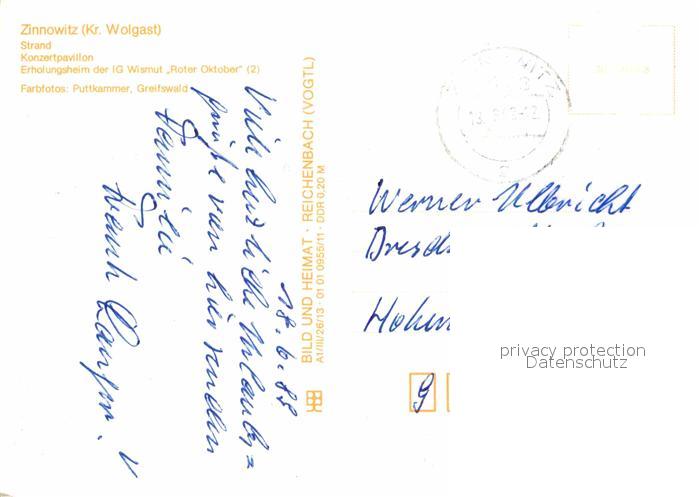 Zinnowitz (Kr. Wolgast)
Strand
Konzertpavillon
Erholungsheim der IG Wismut „Roter Oktober" (2)
Farbfotos: Puttkammer, Greifswald
BILD UND HEIMAT · REICHENBACH (VOGTL)
A1/III/26/13 · 01 01 0955/11 · DDR 0,20 M
18.6.88
Viele herzliche Urlaubs=
grüße von hier senden
Familie
Werner Ulbricht
Dresd
Hohen
privacy protection
Datenschutz